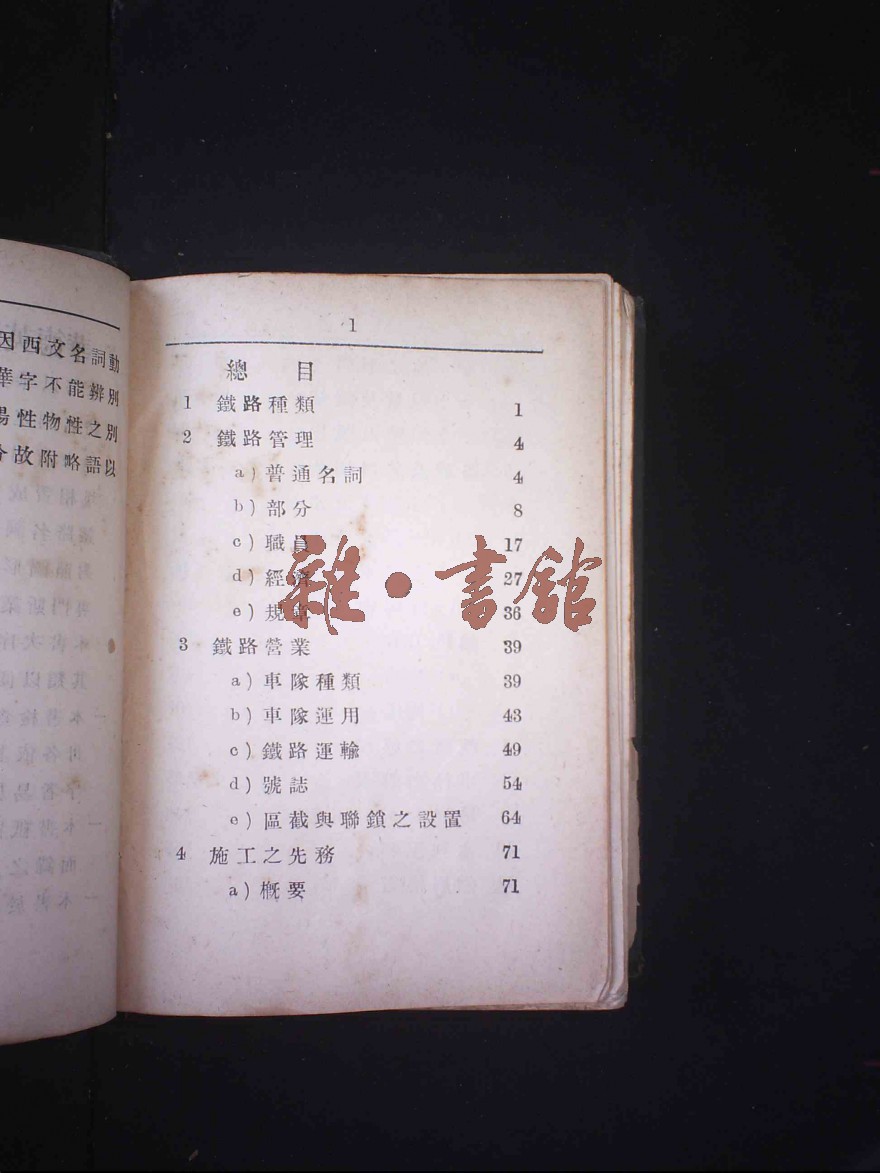 因西文名詞動
華字不能辨別
陽性物性之別
分故附略語以
1
總 目
1 鐵路種類 1
2 鐵路管理 4
a) 普通名詞 4
b) 部分 8
c) 職員 17
d) 經濟 27
e) 規章 36
3 鐵路營業 39
a) 車隊種類 39
b) 車隊運用 43
c) 鐵路運輸 49
d) 號誌 54
e) 區截與聯鎖之設置 64
4 施工之先務 71
a) 概要 71
雜·書館